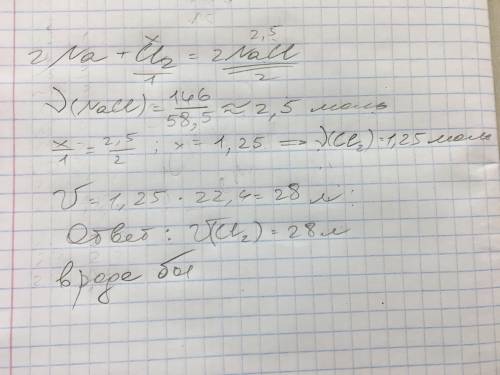 x 2,5
2Na + Cl₂ = 2NaCl
1 2
ν(NaCl) = 146/58,5 ≈ 2,5 моль
x/1 = 2,5/2 ; x = 1,25 ⇒ ν(Cl₂) = 1,25 моль
V = 1,25 · 22,4 = 28 л
Ответ: V(Cl₂) = 28 л
вроде бы